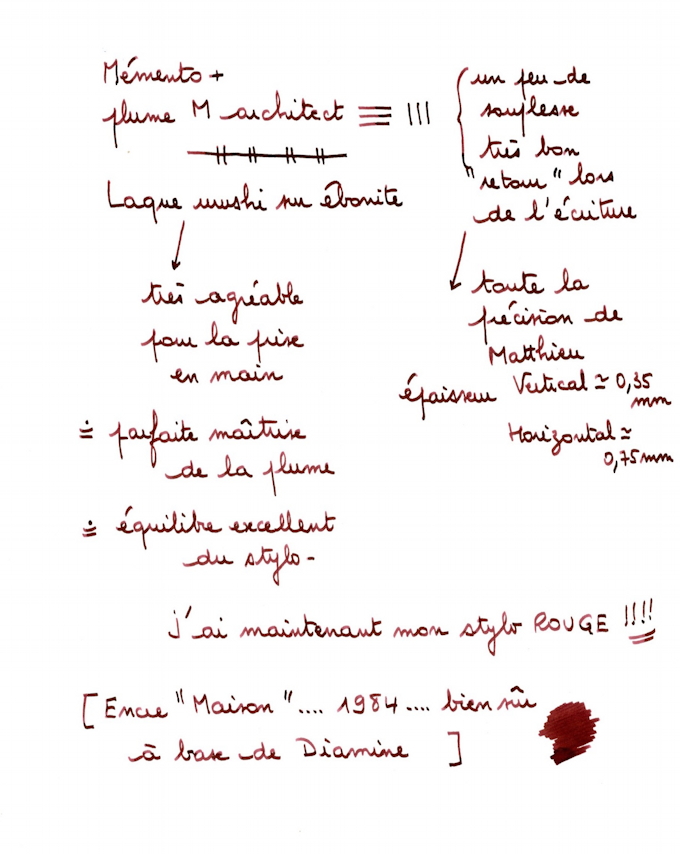 Mémento +
plume M architect
Laque urushi sur ébonite
très agréable
pour la prise
en main
≐ parfaite maîtrise
de la plume
≐ équilibre excellent
du stylo -
un peu de
souplesse
très bon
"retour" lors
de l'écriture
toute la
précision de
Matthieu
épaisseur Vertical ≃ 0,35
mm
Horizontal ≃
0,75mm
J'ai maintenant mon stylo ROUGE !!!!
[Encre "Maison".... 1984.... bien sûr
à base de Diamine ]